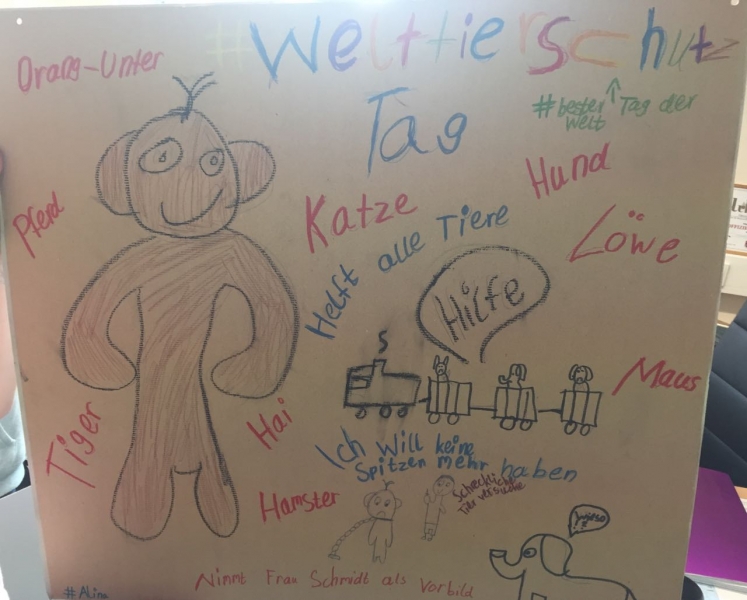 Orang-Unter
#Welttierschutz
Tag
#bester Tag der
Welt
Hund
Pferd
Katze
Löwe
Helft alle Tiere
Hilfe
Maus
Tiger
Hai
Ich will keine
Spitzen mehr haben
Hamster
Schreckliche
Tierversuche
wieso
?
Nimmt Frau Schmidt als Vorbild
#ALina